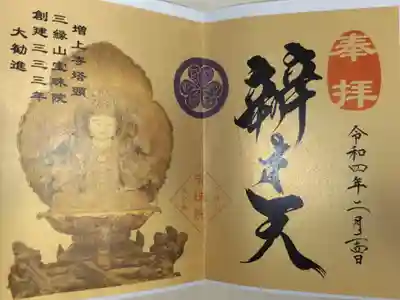 奉拝
辨才天
令和四年二月
増上寺塔頭
三縁山宝珠院
創建三三三年
大勧進